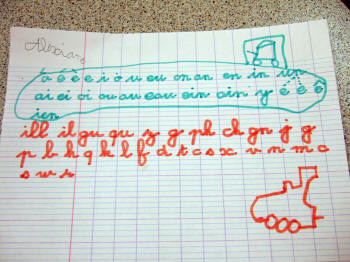 Alexiane
a é è e i o u eu on an en in un
ai ei oi ou au eau ein ain y é è ê
ien
ill il gu qu z g ph ch gn j g
p b h q k l f d t c s x v n m c
s w r